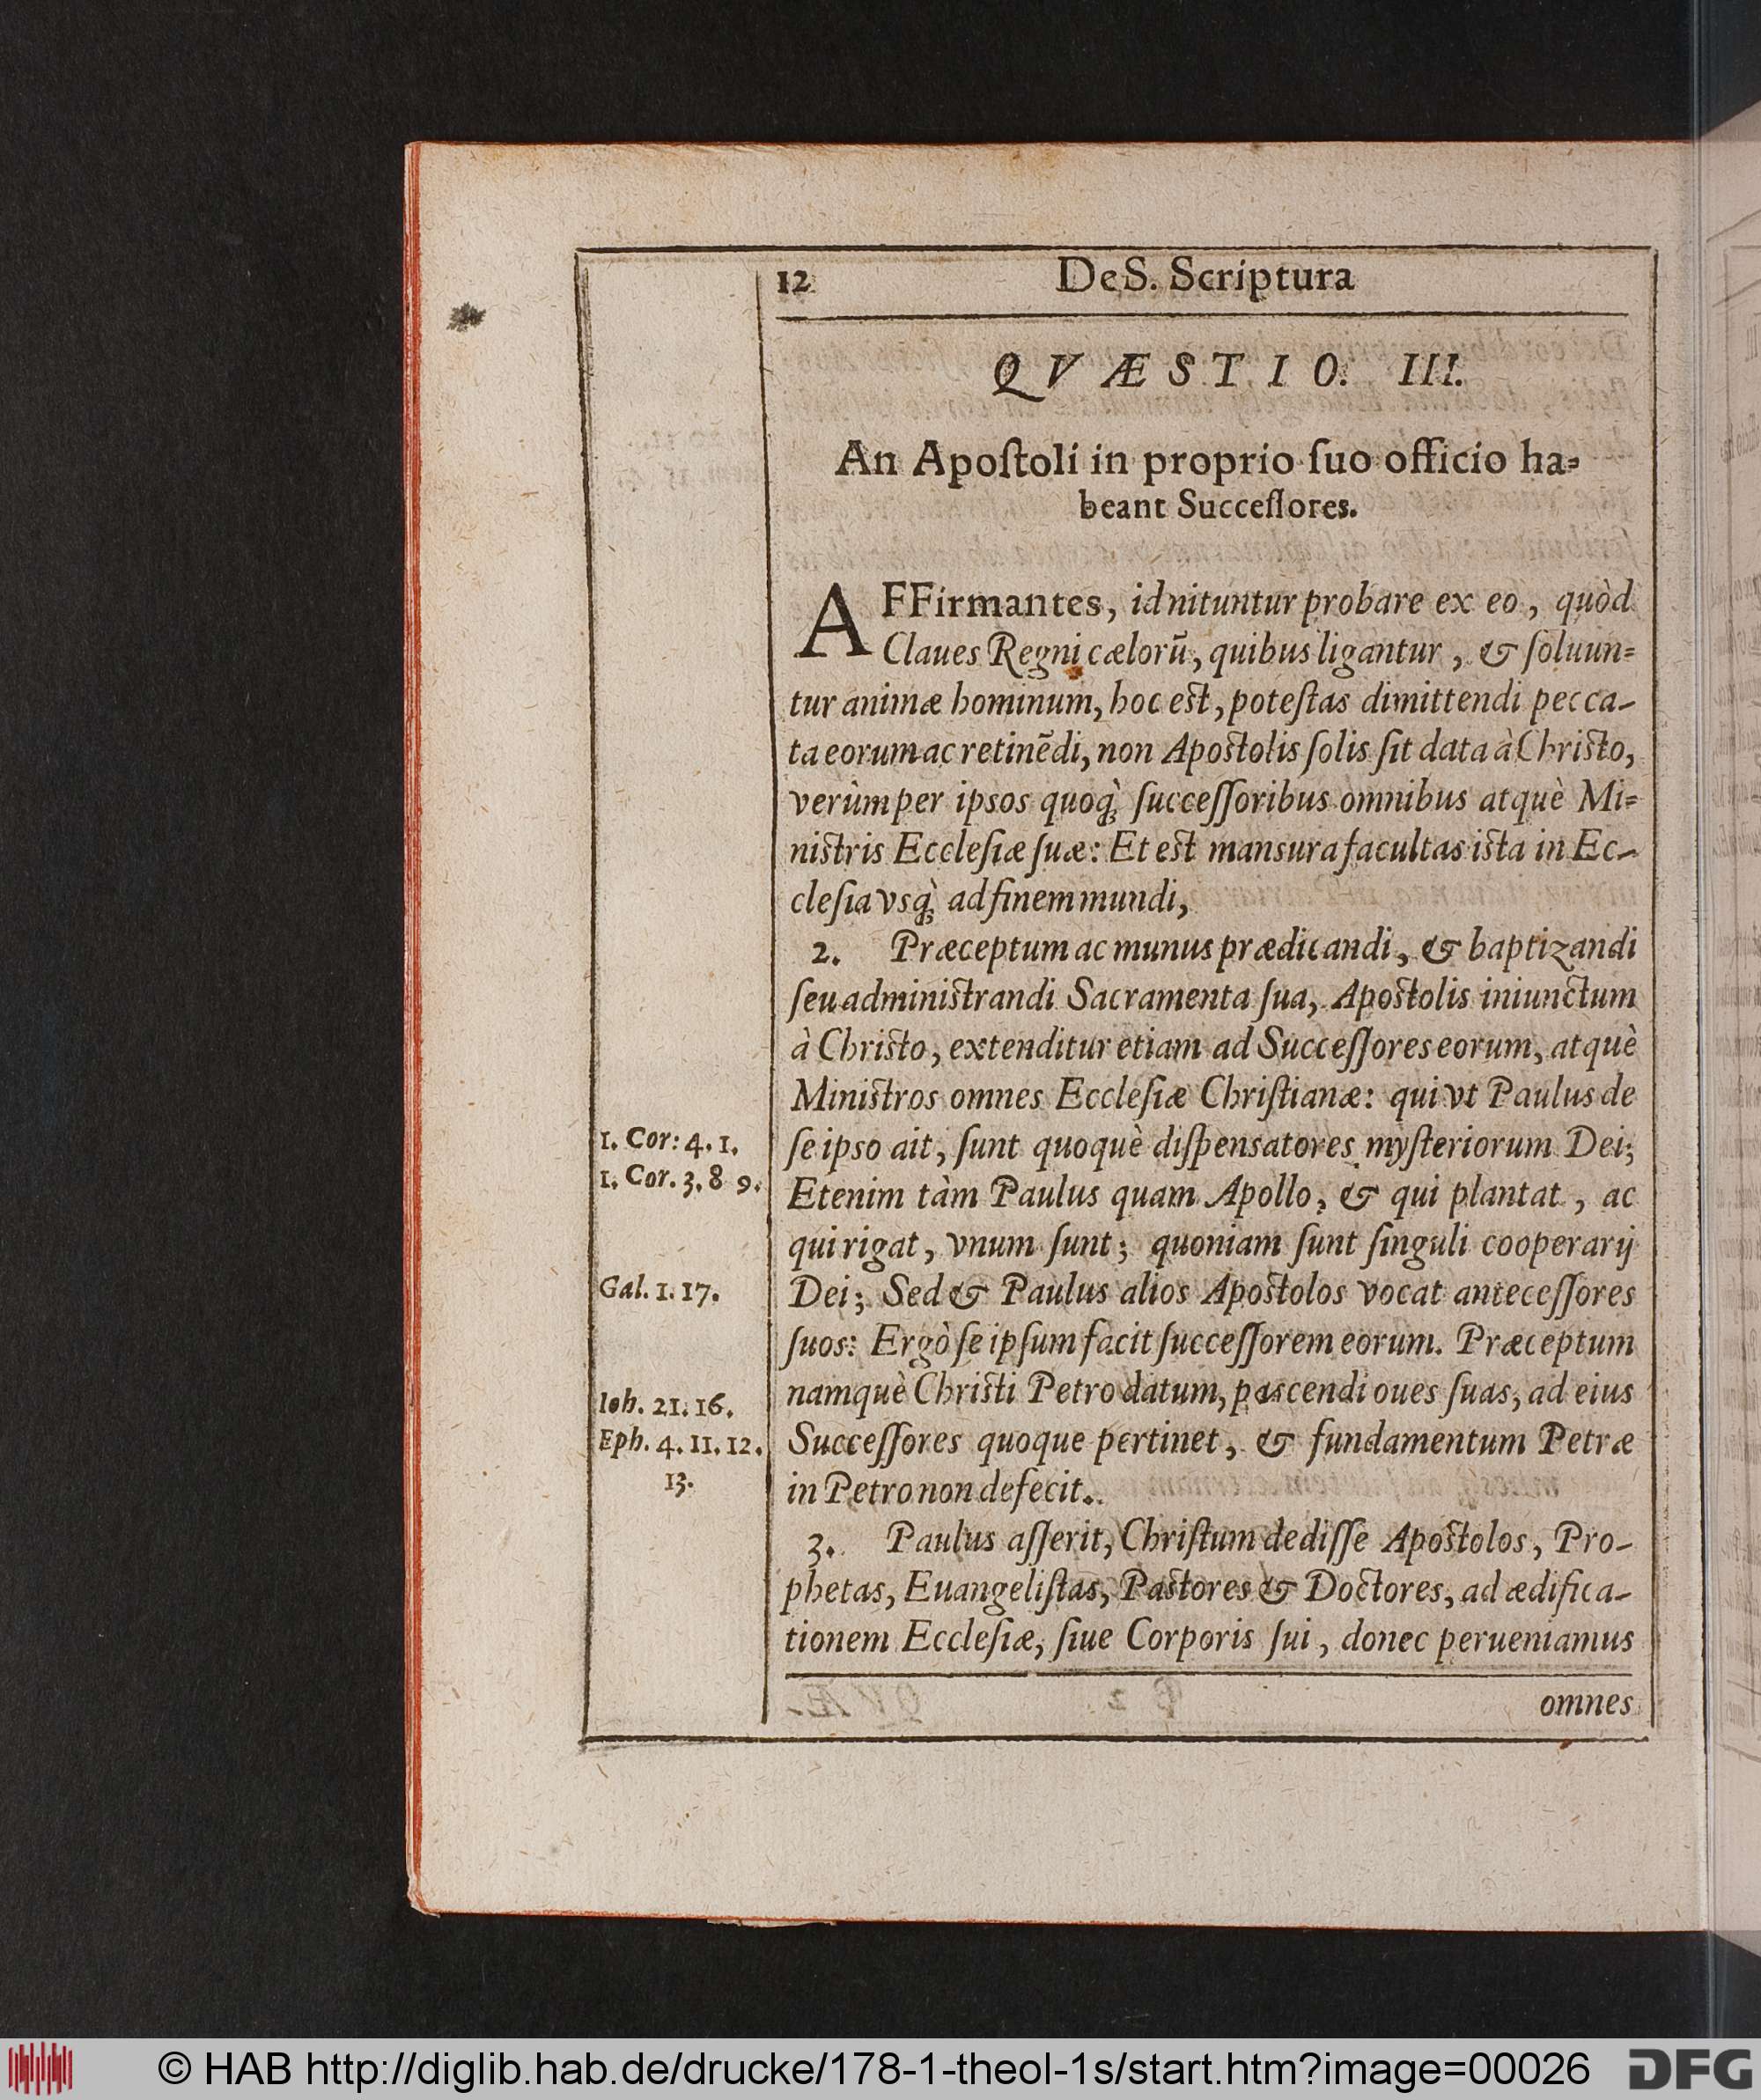 12 De S. Scriptura
QVÆSTIO. III.
An Apoſtoli in proprio ſuo officio ha⸗
beant Succeſſores.
AFFirmantes, id nituntur probare ex eo, quòd
Claues Regni cælorũ, quibus ligantur, & ſoluun⸗
tur animæ hominum, hoc est, poteſtas dimittendi pecca-
ta eorum ac retinẽdi, non Apostolis ſolis ſit data à Christo,
verùm per ipsos quoq́; ſucceſſoribus omnibus atquè Mi⸗
nistris Eccleſiæ ſuæ: Et est mansura facultas ista in Ec-
cleſia vsq́; ad finem mundi,
2. Præceptum ac munus prædicandi, & baptizandi
ſeu administrandi Sacramenta ſua, Apostolis iniunctum
à Christo, extenditur etiam ad Succeſſores eorum, atquè
Ministros omnes Eccleſiæ Chriſtianæ: qui vt Paulus de
1. Cor: 4. 1. ſe ipso ait, ſunt quoquè diſpensatores myſteriorum Dei;
1. Cor. 3. 8 9. Etenim tàm Paulus quam Apollo, & qui plantat, ac
qui rigat, vnum ſunt; quoniam ſunt ſinguli cooperarij
Gal. 1. 17. Dei; Sed & Paulus alios Apostolos vocat anteceſſores
ſuos: Ergò ſe ipſum facit ſucceſſorem eorum. Præceptum
Ioh. 21. 16. namquè Christi Petro datum, pascendi oues ſuas, ad eius
Eph. 4. 11. 12. Succeſſores quoque pertinet, & fundamentum Petræ
13. in Petro non defecit.
3. Paulus aſſerit, Chriſtum dediſſe Apostolos, Pro-
phetas, Euangeliſtas, Pastores & Doctores, ad ædifica-
tionem Eccleſiæ, ſiue Corporis ſui, donec perueniamus
omnes
© HAB http://diglib.hab.de/drucke/178-1-theol-1s/start.htm?image=00026 DFG